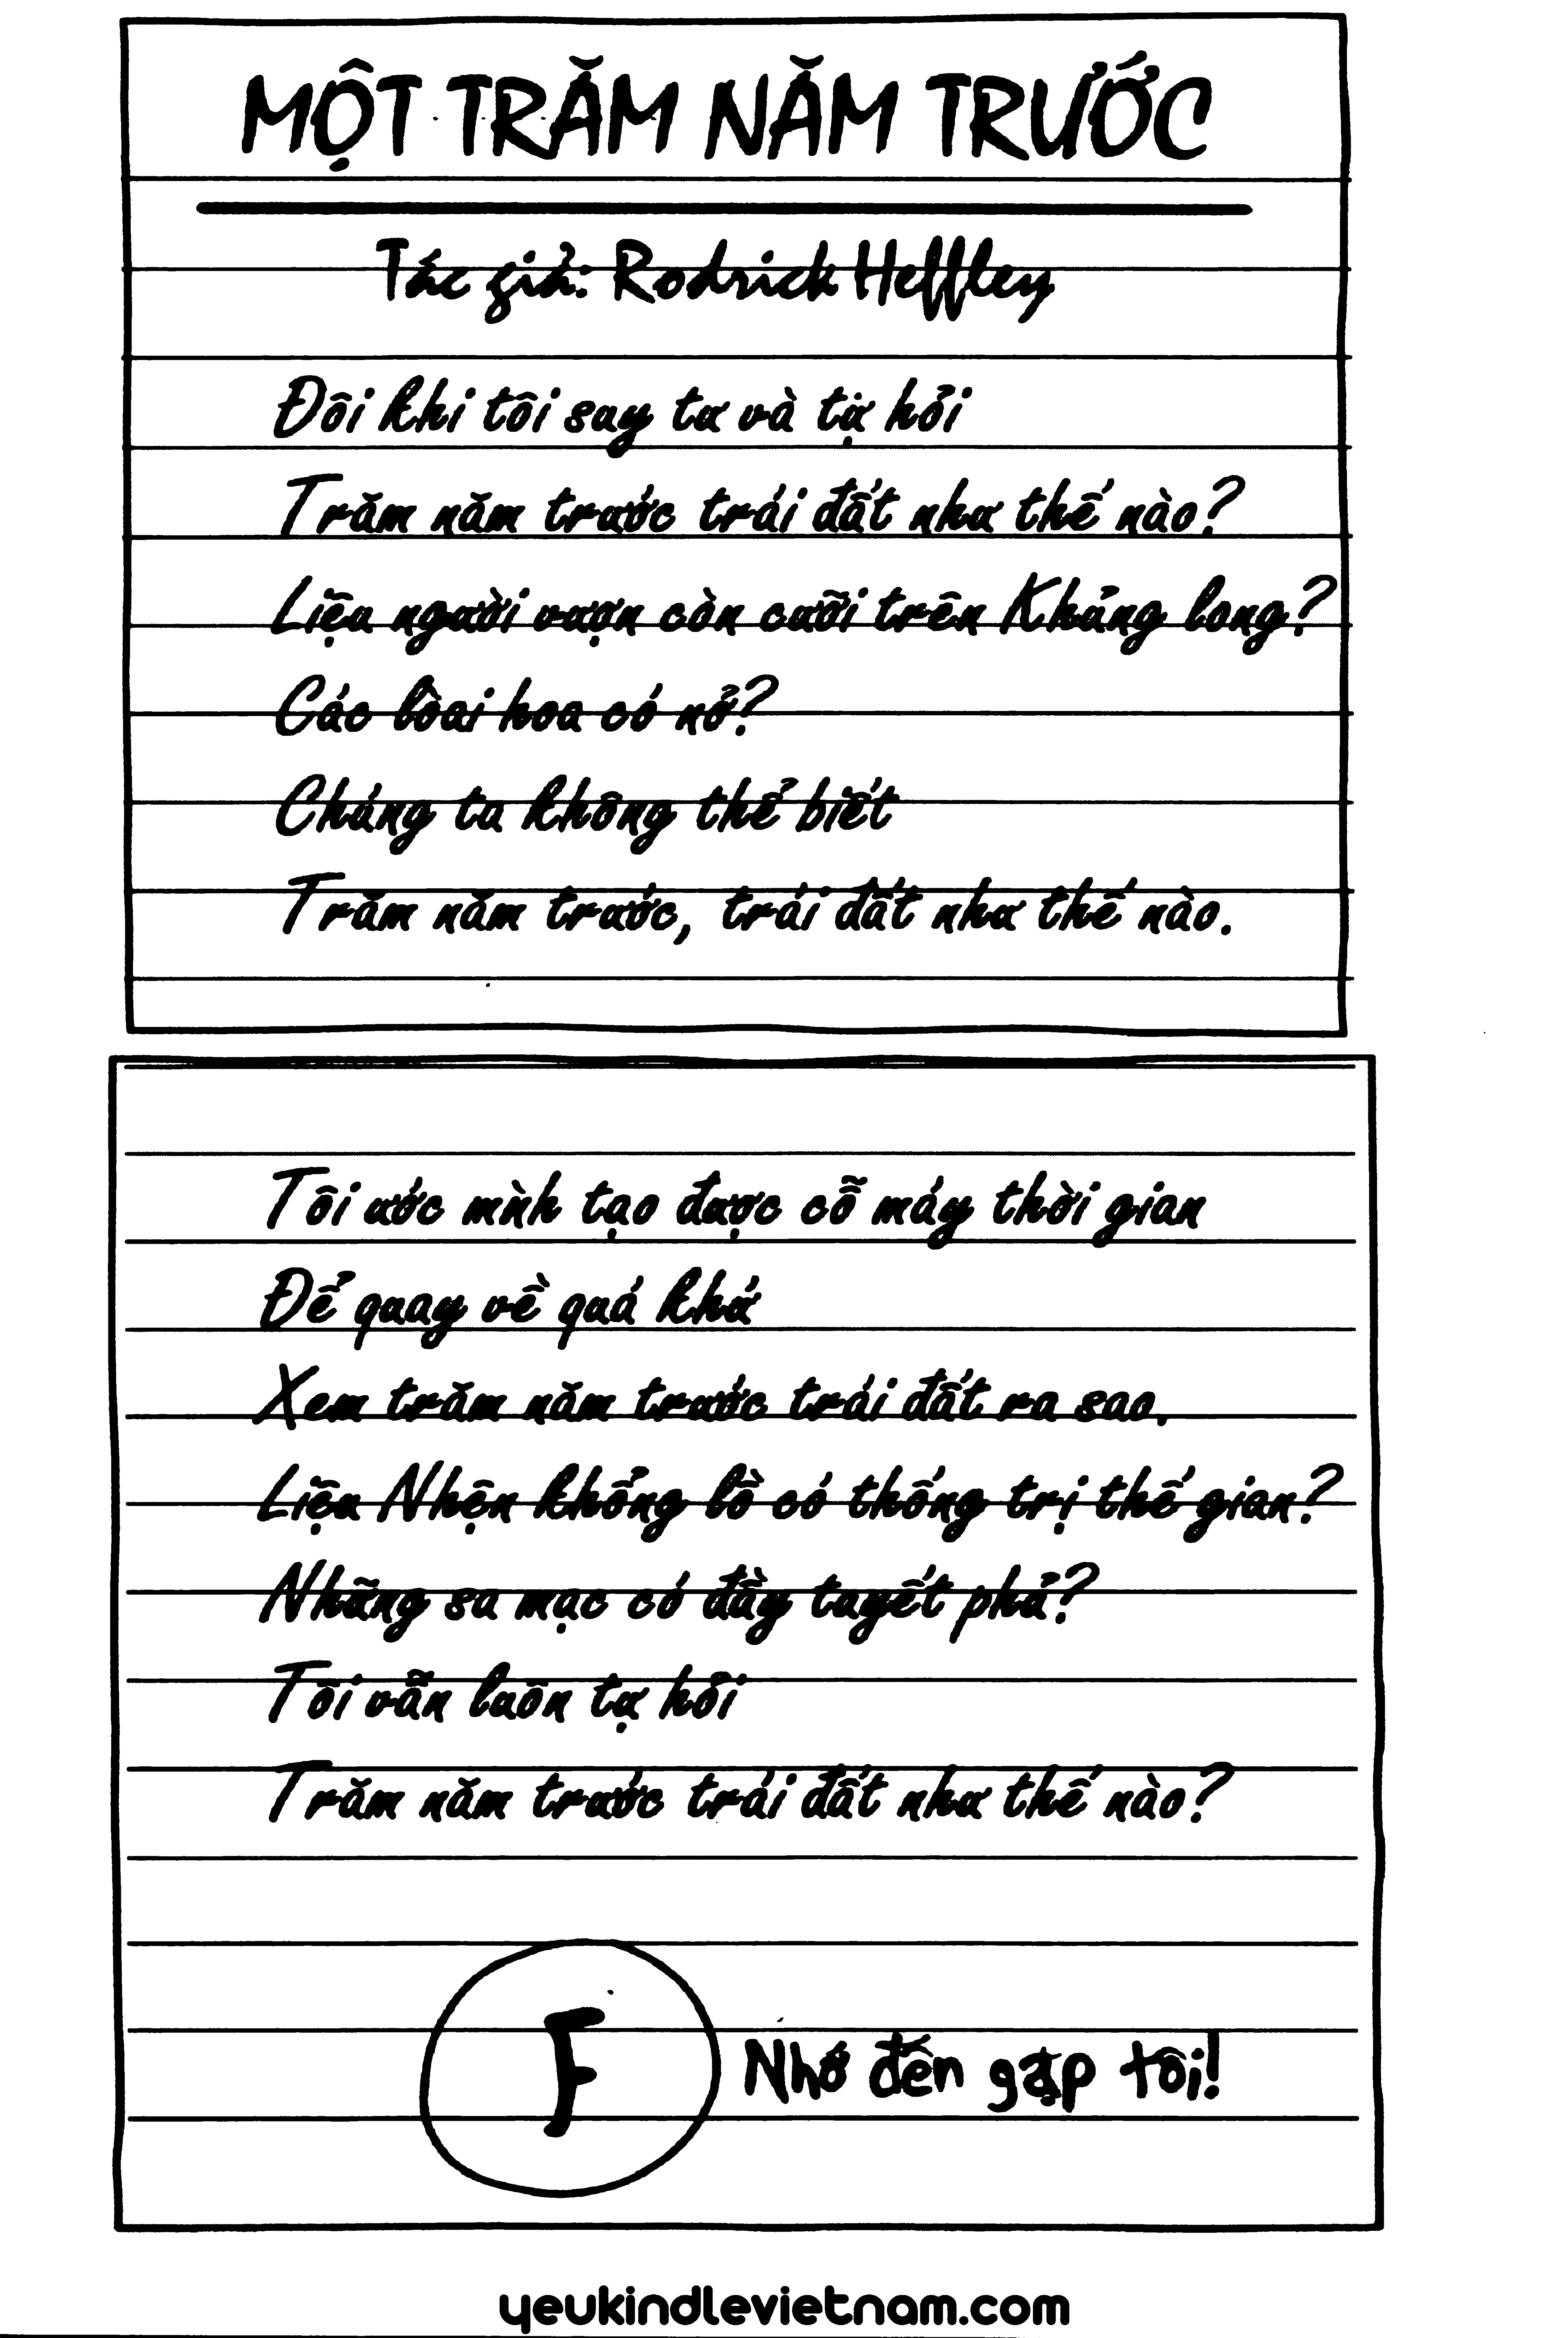 MỘT TRĂM NĂM TRƯỚC
Tác giả: Rodrick Heffley
Đôi khi tôi say tư và tự hỏi
Trăm năm trước trái đất như thế nào?
Liệu người vượn còn cưỡi trên Khủng long?
Các lòai hoa có nở?
Chúng ta không thể biết
Trăm năm trước, trái đất như thế nào.
Tôi ước mình tạo được cỗ máy thời gian
Để quay về quá khứ
Xem trăm năm trước trái đất ra sao.
Liệu Nhện khổng lồ có thống trị thế gian?
Những sa mạc có đầy tuyết phủ?
Tôi vẫn luôn tự hỏi
Trăm năm trước trái đất như thế nào?
F
Nhớ đến gặp tôi!
yeukindlevietnam.com